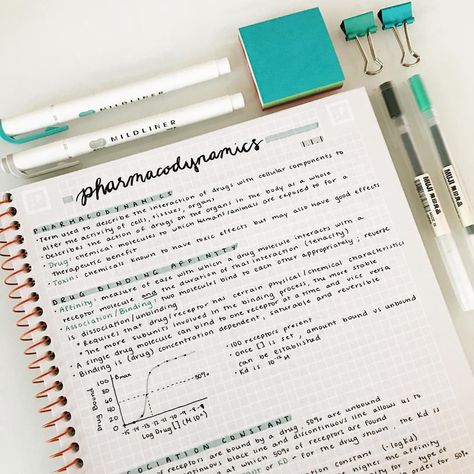 MILDLINER
MILDLINER
MUJI 無印良品
MUJI 無印良品
pharmacodynamics
1.1.1
PHARMACODYNAMICS
· Term used to describe the interaction of drugs with cellular components to
alter the activity of cells, tissues, organs
· Describes the action of drugs to the organs in the body as a whole
· Drug: chemical molecules to which humans/animals are exposed to for a
therapeutic benefit
· Toxin: chemicals known to have toxic effects but may also have good effects
DRUG BINDING AFFINITY
· Affinity: measure of ease with which a drug molecule interacts with a
receptor molecule and the duration of that interaction (tenacity)
· Association/Binding: two molecules bind to each other appropriately; reverse
is dissociation/unbinding
· Requires that drug/receptor has certain physical/chemical characteristics
· The more subunits involved in the binding process, the more stable
· A single drug molecule can bind to one receptor at a time and vice versa
· Binding is (drug) concentration dependent, saturable and reversible
Drug Bound
100
80
60
40
20
0
Bmax
50%
-15 -14 -13 -12 -11 -10 -9 -8
Log Drug [] (M)
· 100 receptors present
· Once [] is set, amount bound vs unbound
can be established
· Kd is 10⁻¹² M
CONSTANT
receptors are bound by a drug, 50% are unbound
black line and discontinuous line allows us to
at which 50% of receptors are found
or KD = for the drug shown, the Kd is
constant. (-logKd)
the highest the affinity
the type of